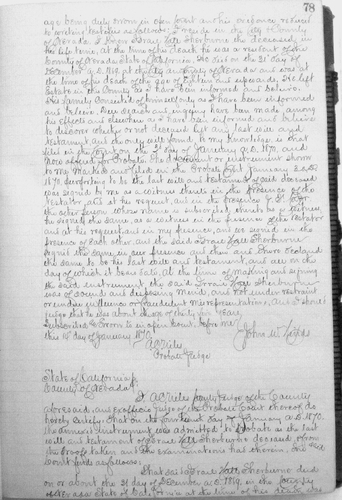 78
age being duly sworn in open Court and his evidence reduced
to writing testified as follows: I reside in the City & County
of Nevada I knew Isaac Hall Sherburne the deceased in
his life time, at the time of his death he was a resident of the
County of Nevada State of California. He died on the 21st day of
December A.D. 1869 at the City and County of Nevada and was at
the time of his death of the age of and upwards. He left
Estate in the County as I have been informed and believe.
His family consisted of himself only as I have been informed
and believe. Due search and inquiry has been made among
his effects and elsewhere as I have been informed and believe
to discover whether or not deceased left any last will and
testament and the only will found to my knowledge is that
filed in this Court on the 3d day of January A.D. 1870, and
now offered for Probate. The document or instrument shown
to me marked as filed in the Probate Court January 3d A.D.
1870 purporting to be the last will and testament of said deceased
was signed by me as a witness thereto in the presence of the
testator and at his request, and in the presence of
the other person whose name is subscribed thereto as a witness,
he signed the same as a witness in the presence of the testator
and at his request and in my presence, and we signed in the
presence of each other and the said Isaac Hall Sherburne
signed the same in our presence and then and there declared
the same to be his last will and testament, and all on the
day of which it bears date. At the time of making and signing
the said instrument the said Isaac Hall Sherburne
was of sound and disposing mind, and not under restraint
or undue influence or fraudulent misrepresentations, as I should
judge that he was about years.
Subscribed & Sworn to in open Court, before me
this day of January 1870
John W.
A.C. Niles
Probate Judge
State of California
County of Nevada
I A.C. Niles County Judge of the County
aforesaid, and exofficio judge of the Probate Court thereof do
hereby certify, That on the day of January A.D. 1870.
the annexed instrument was admitted to Probate as the last
will and testament of Isaac Hall Sherburne deceased, & from
the proofs taken and the examinations had therein, the said
Court finds as follows:
That said Isaac Hall Sherburne died
on or about the 21st day of December A.D. 1869, in the County
of Nevada State of Cal. that at the time of his death he